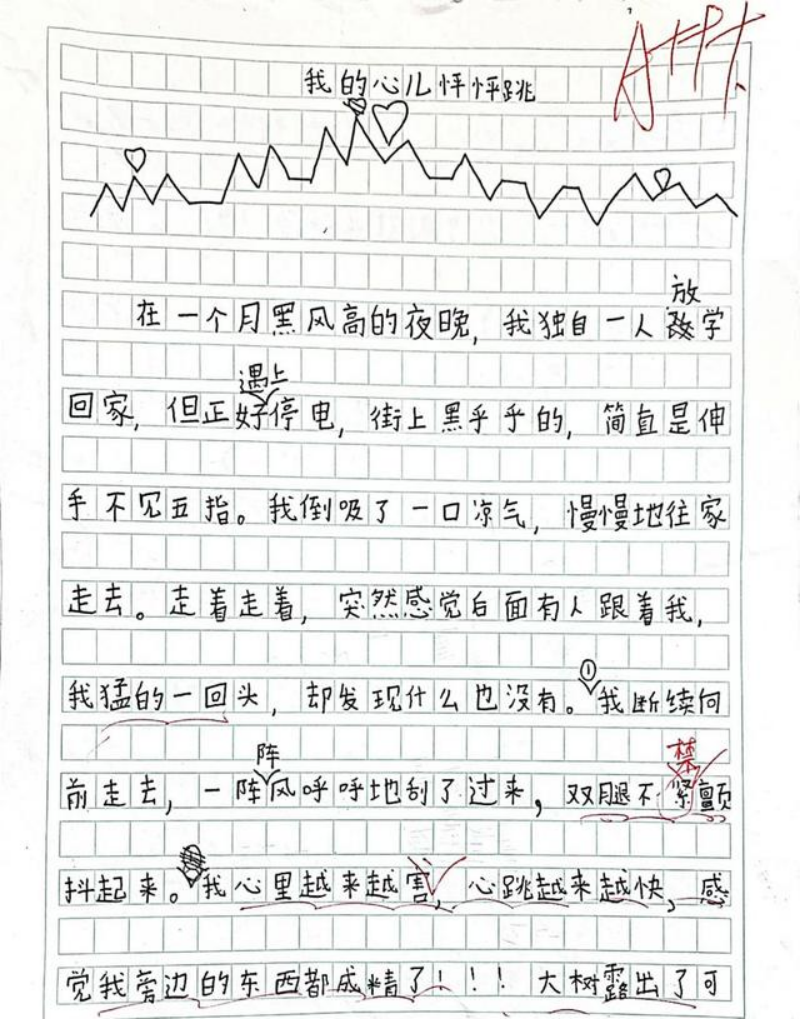 A++
我的心儿怦怦跳
在一个月黑风高的夜晚，我独自一人放学
回家，但正好遇上停电，街上黑乎乎的，简直是伸
手不见五指。我倒吸了一口凉气，慢慢地往家
走去。走着走着，突然感觉后面有人跟着我，
我猛的一回头，却发现什么也没有。①我断续向
前走去，一阵阵风呼呼地刮了过来，双腿不禁颤
抖起来。我心里越来越害，心跳越来越快，感
觉我旁边的东西都成精了！！！大树露出了可